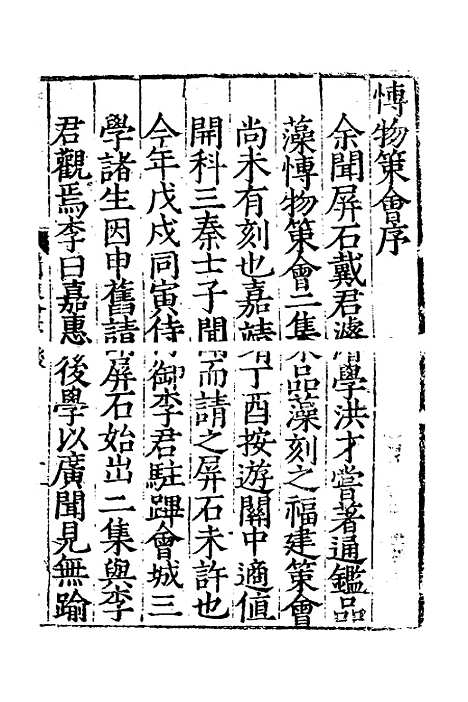 愽物策會序
余聞屏石戴君邃學洪才嘗著通鑑品
藻愽物策會二集品藻刻之福建策會
尚未有刻也嘉靖丁酉按遊關中適值
開科三秦士子聞而請之屏石未許也
今年戊戌同寅侍御李君駐蹕會城三
學諸生因申舊請屏石始出二集與李
君觀焉李曰嘉惠後學以廣聞見無踰